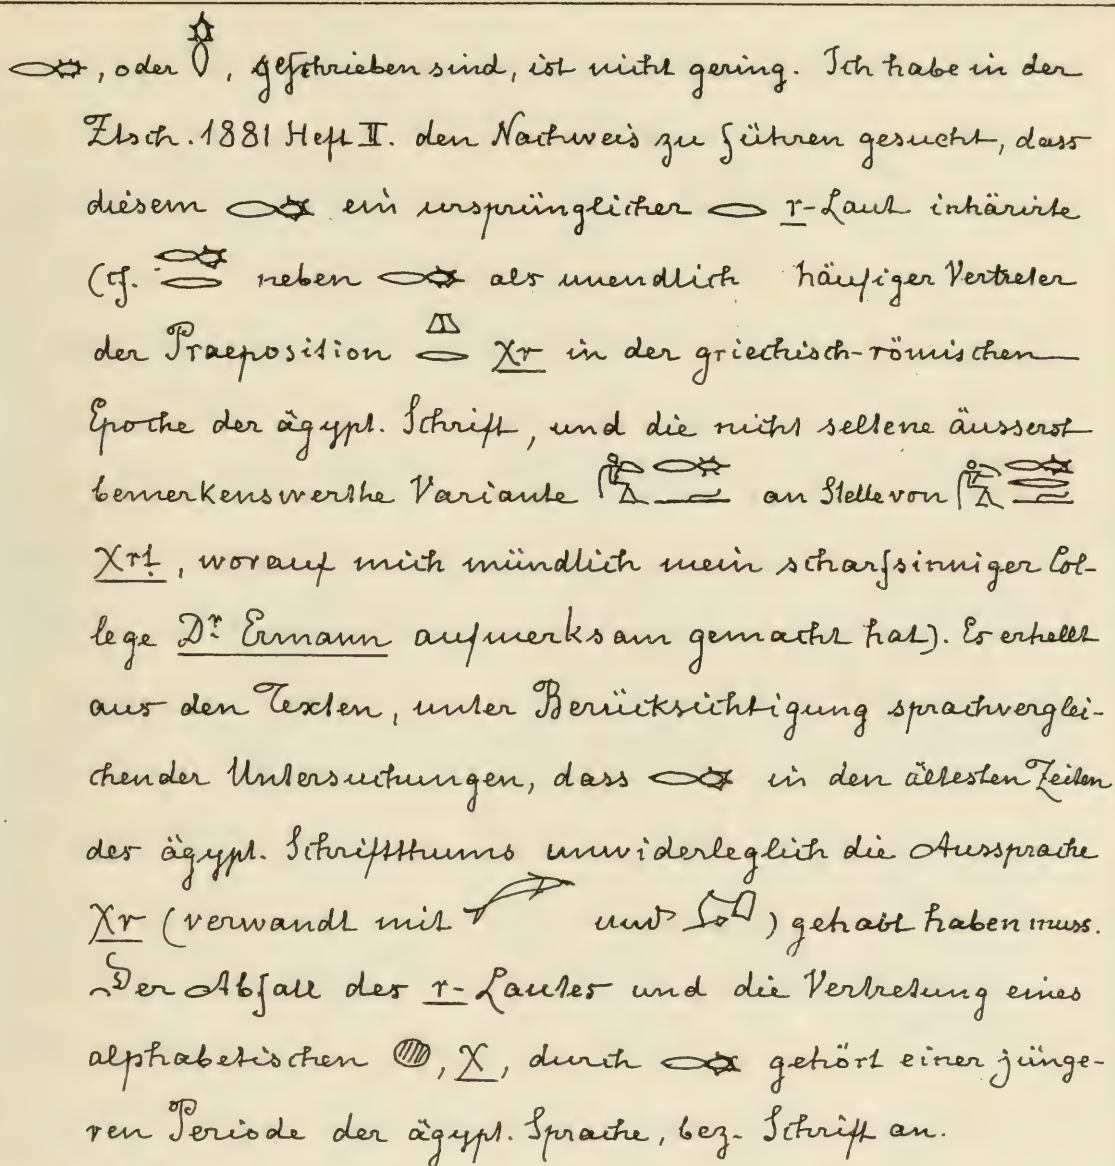 𓆼, oder 𓆼, geschrieben sind, ist nicht gering. Ich habe in der
Ztsch. 1881 Heft II. den Nachweis zu führen gesucht, dass
diesem 𓆼 ein ursprünglicher 𓂋 r-Laut inhärirte
(cf. 𓆼𓂋 neben 𓆼 als unendlich häufiger Vertreter
der Praeposition 𓂋 χr in der griechisch-römischen
Epoche der ägypt. Schrift, und die nicht seltene äusserst
bemerkenswerthe Variante 𓆼𓂝 an Stelle von 𓆼𓂋𓂝
χrṭ, worauf mich mündlich mein scharfsinniger Col-
lege Dr. Ermann aufmerksam gemacht hat). Es erhellt
aus den Texten, unter Berücksichtigung sprachverglei-
chender Untersuchungen, dass 𓆼 in den ältesten Zeiten
des ägypt. Schriftthums unwiderleglich die Aussprache
χr (verwandt mit und ) gehabt haben muss.
Der Abfall des r-Lautes und die Vertretung eines
alphabetischen 𓐍, χ, durch 𓆼 gehört einer jünge-
ren Periode der ägypt. Sprache, bez. Schrift an.